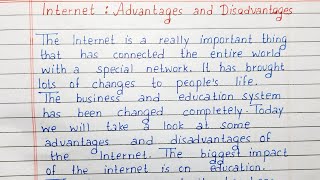 Internet : Advantages and Disadvantages
The Internet is a really important thing
that has connected the entire world
with a special network. It has brought
lots of changes to people's life.
The business and education system
has been changed completely. Today
we will take a look at some
advantages and disadvantages of
the Internet. The biggest impact
of the internet is on education.